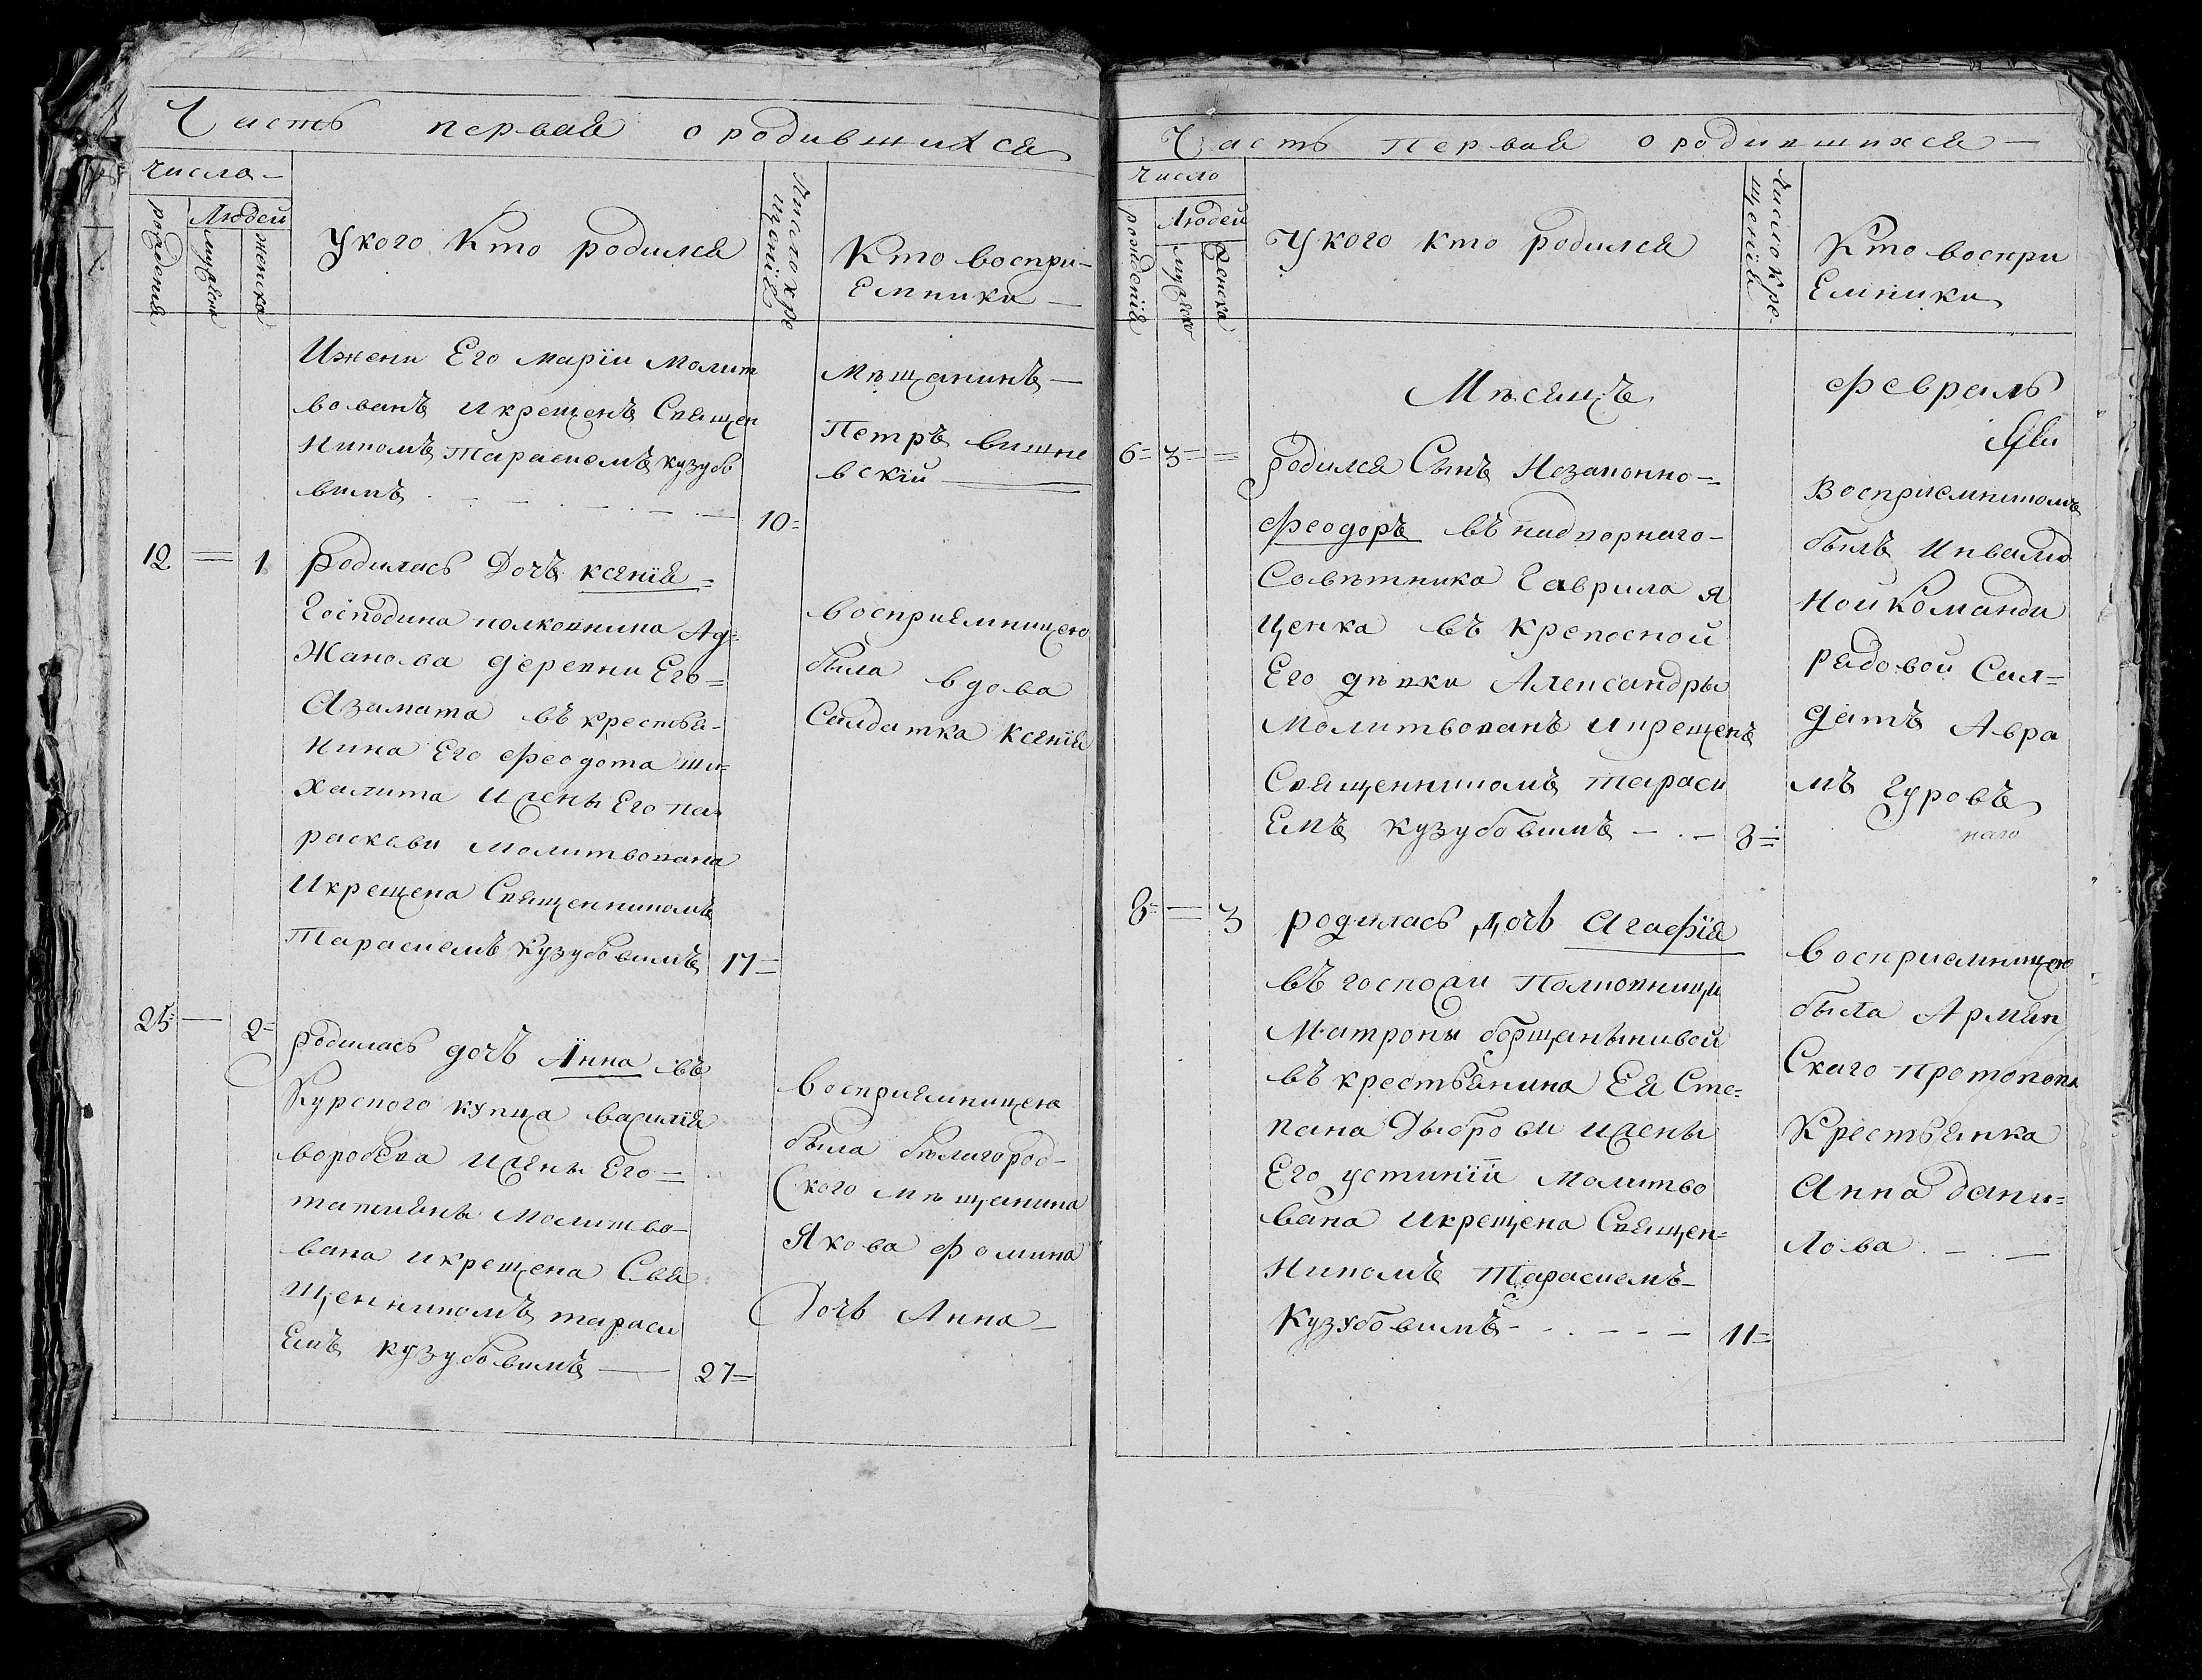 Часть первая ородившихся
числа
рождения
Людей
мужеска
женска
Укого Кто родился
Число кре
щенія
Кто воспри-
Емники
Ижени Его Маріи Молит
вованъ икрещенъ Священ
Никомъ Тарасиемъ кузубо
вимъ
10
Мѣщанинъ
Петръ вишне
вскій
12 — 1
родилась Дочъ ксенія
Господина полковника Ад-
Жанова деревни Его
Азамата въ крестья-
нина Его Феодота ши-
халита Ижены Его па-
раскеви Молитвована
Икрещена Священникомъ
Тарасиемъ Кузубовимъ 17
восприемницею
была вдова
Салдатка Ксенія
25 — 2
родилась дочъ Анна въ
Курского купца василія
воробева Ижены Его
татияны Молитво-
вана икрещена Свя
Щенникомъ тараси
Емъ кузубовимъ — 27
восприемницею
была бѣлагород-
Ского Мѣщанина
Якова Фомина
Дочь Анна
Часть Первая ородившихся
Число
рожденія
Людей
мужеско
Женска
Укого кто родился
Число кре-
щенія
Кто воспри
Емники
Мѣсяцъ
Февраль
6 3
родился Сынъ Незаконно-
Феодоръ въ надворнаго
Совѣтника Гаврила Я
ценка въ крепосной
Его дѣвки Александры
Молитвованъ икрещенъ
Священникомъ тараси
Емъ кузубовимъ — 8
Восприемникомъ
былъ Инвалид
Ной Команди
рядовой Сал-
датъ Авра
мъ Гуровъ
наго
8 — 3
родилась дочь Агафія
въ госпожи Полковници
Матроны борщаньнивой
въ крестьянина Ея Сте-
пана Дыброви ижены
Его устиніи Молитво
вана икрещена Священ-
Никомъ Тарасиемъ
Кузубовимъ — 11
восприемницею
была Армян
Скаго протопопа
Крестьянка
Анна дани-
лова